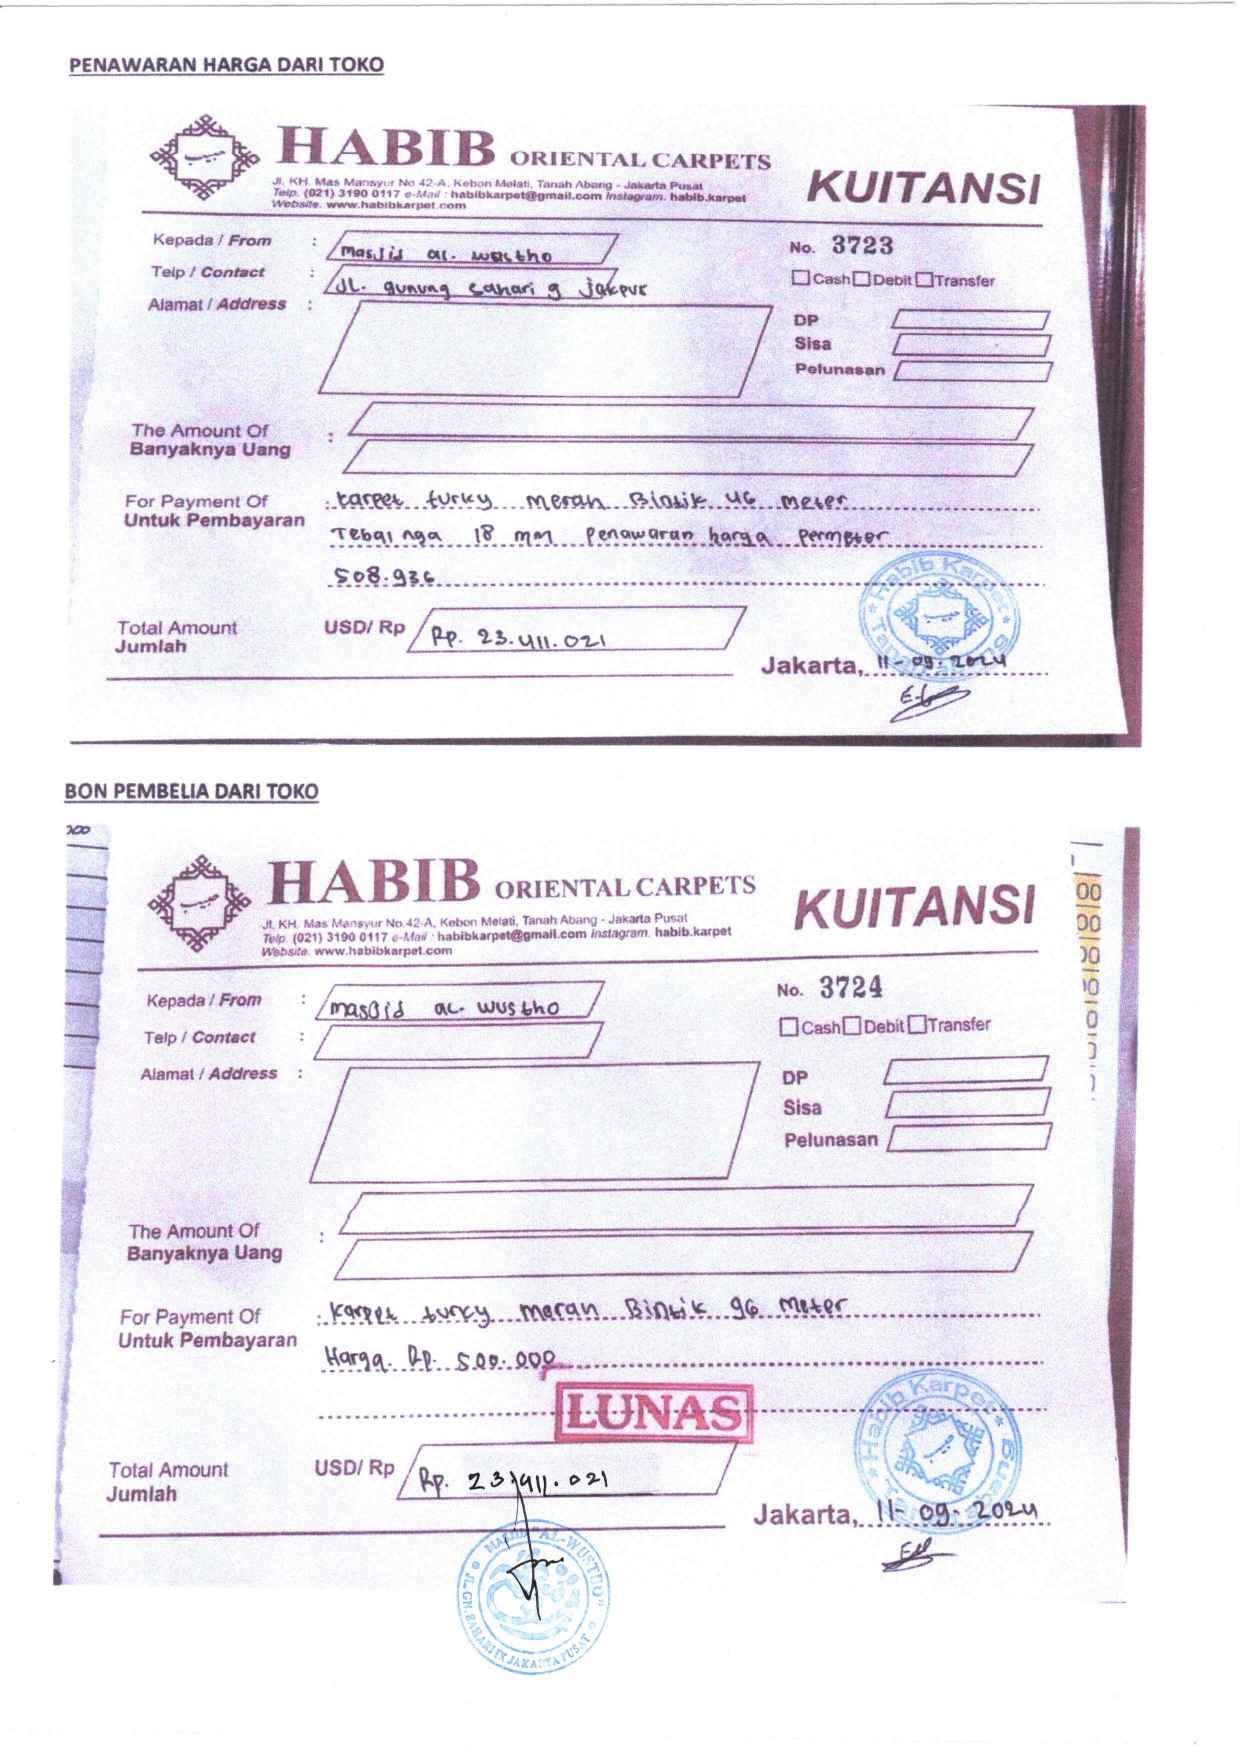 PENAWARAN HARGA DARI TOKO
HABIB ORIENTAL CARPETS
Jl. KH. Mas Mansyur No 42-A, Kebon Melati, Tanah Abang - Jakarta Pusat
Telp. (021) 3190 0117 e-Mail : habibkarpet@gmail.com Instagram. habib.karpet
Website. www.habibkarpet.com
KUITANSI
Kepada / From : masjid al. wustho
No. 3723
Telp / Contact : JL. gunung sahari 9 jakpur
Cash Debit Transfer
Alamat / Address :
DP
Sisa
Pelunasan
The Amount Of
Banyaknya Uang :
For Payment Of
Untuk Pembayaran
: karpet turky meran Bintik 46 meter
Tebal nga 18 mm penawaran harga permeter
508.936
Total Amount
Jumlah
USD/ Rp Rp. 23.411.021
Habib Karpet
Jakarta, 11-09-2024
BON PEMBELIA DARI TOKO
HABIB ORIENTAL CARPETS
Jl. KH. Mas Mansyur No.42-A, Kebon Melati, Tanah Abang - Jakarta Pusat
Telp. (021) 3190 0117 e-Mail : habibkarpet@gmail.com Instagram. habib.karpet
Website. www.habibkarpet.com
KUITANSI
Kepada / From : masjid al. wustho
No. 3724
Telp / Contact :
Cash Debit Transfer
Alamat / Address :
DP
Sisa
Pelunasan
The Amount Of
Banyaknya Uang :
For Payment Of
Untuk Pembayaran
: karpet turky meran Bintik 96 meter
Harga. Rp. 500.000
LUNAS
Habib Karpet
Total Amount
Jumlah
USD/ Rp Rp. 23.411.021
Jakarta, 11-09-2024
MASJID "AL-WUSTHO"
JL. GN. SAHARI IX JAKARTA PUSAT